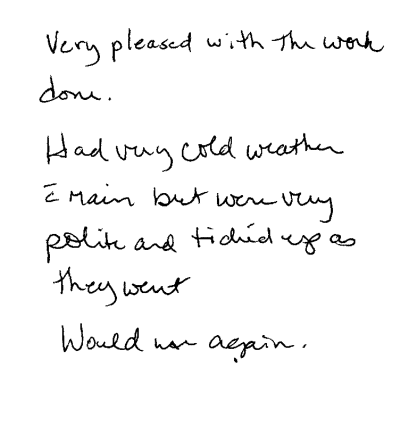 Very pleased with the work
done.
Had very cold weather
c̄ rain but were very
polite and tidied up as
they went
Would use again.